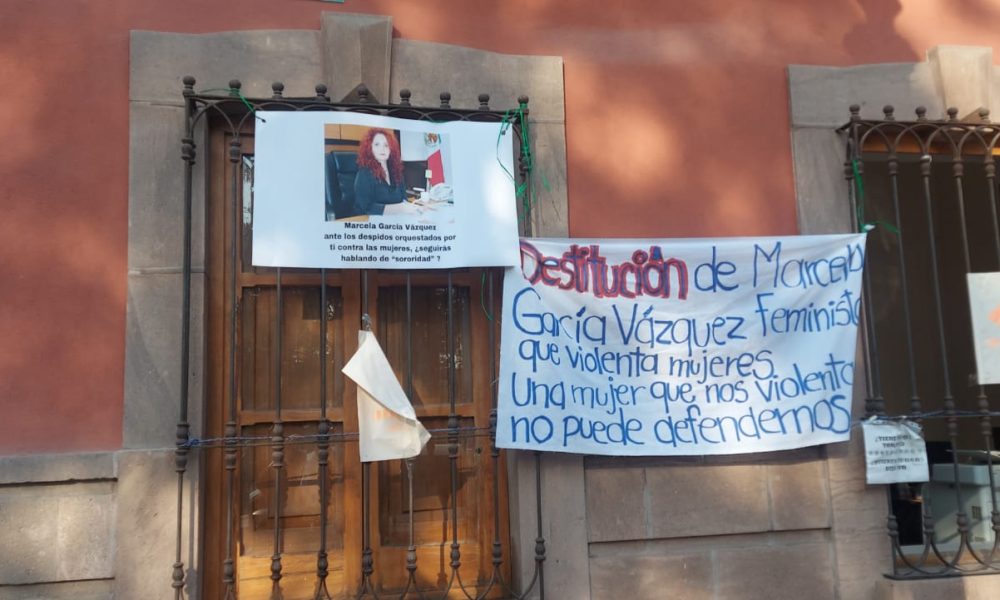 Marcela García Vázquez
ante los despidos orquestados por
ti contra las mujeres, ¿seguirás
hablando de “sororidad” ?
Destitución de Marcela
García Vázquez Feminista
que violenta mujeres.
Una mujer que nos violenta
no puede defendernos